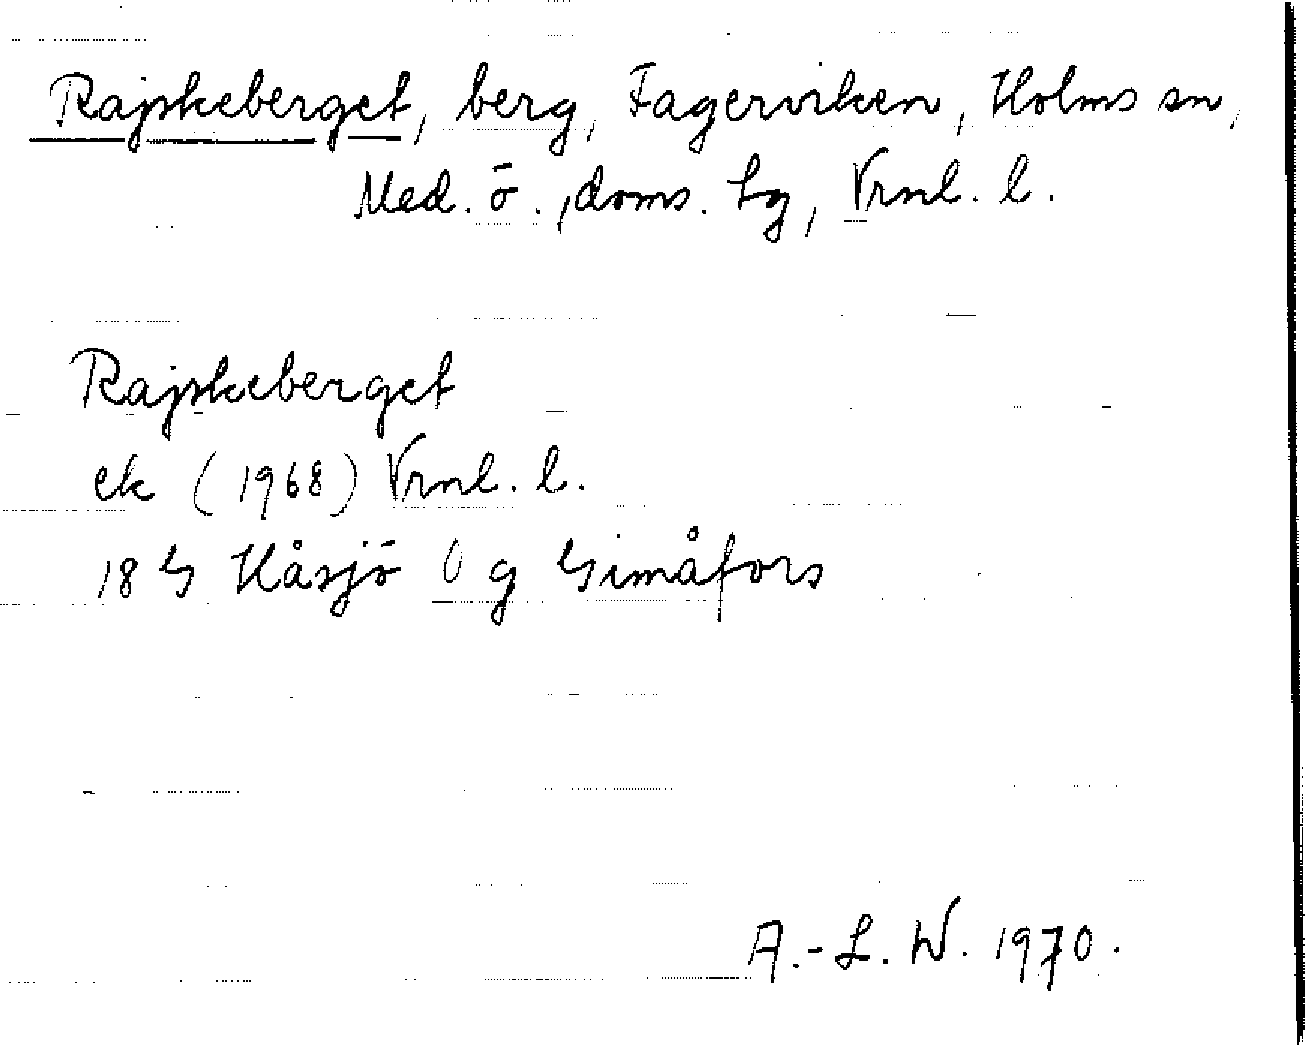 Rajskeberget, berg, Fagerviken, Holms sn,
Med. ö., doms. Lg, Vrnl. l.
Rajskeberget
ek (1968) Vrnl. l.
18 G Håsjö O g Gimåfors
A.-L. W. 1970.